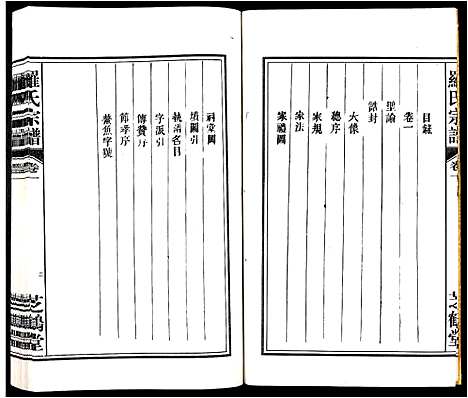 羅氏宗譜
卷一
芝鶴堂
目錄
卷一
聖諭
誥封
大像
總序
家規
家法
家禮圖
祠堂圖
墳圖引
執事名目
字派引
傳贊序
節孝序
鰲魚字號
羅氏宗譜
卷一
芝鶴堂